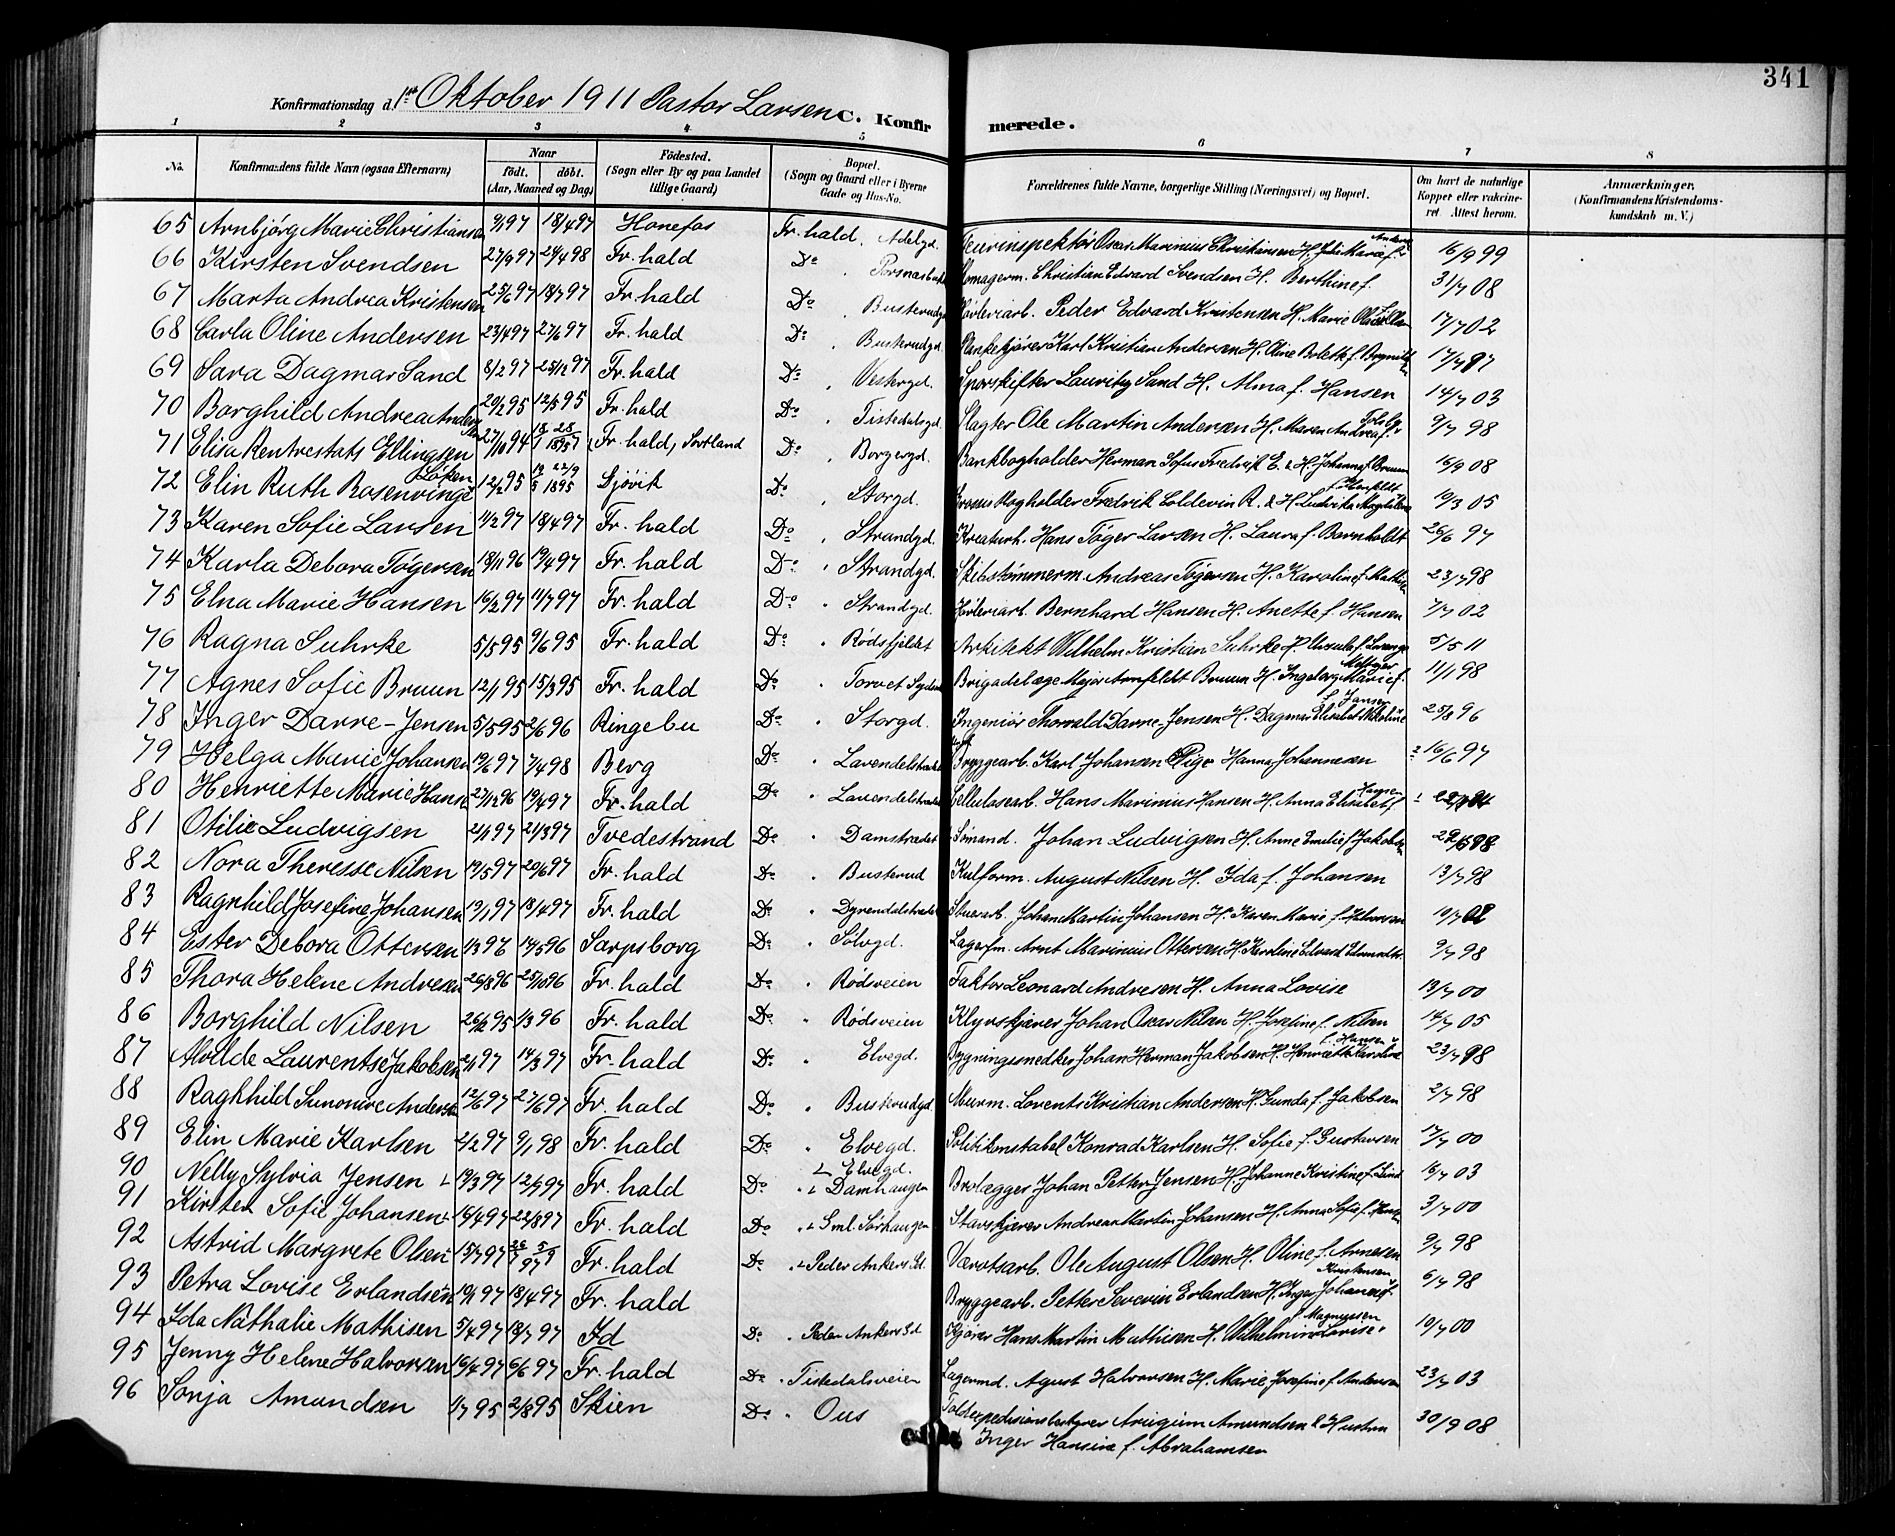 341
Konfirmationsdag d. 1ste Oktober 1911 Pastor Larsen C. Konfirmerede.
1 2 3 4 5 6 7 8
No. Konfirmandens fulde Navn (ogsaa Efternavn) Naar født. døbt. (Aar, Maaned og Dag) Födested. (Sogn eller By og paa Landet tillige Gaard) Bopæl. (Sogn og Gaard eller i Byerne Gade og Hus-No. Forældrenes fulde Navne, borgerlige Stilling (Næringsvei) og Bopæl. Om havt de naturlige Kopper eller vakcineret. Attest herom. Anmærkninger. (Konfirmandens Kristendomskundskab m. V.)
65 Arnbjørg Marie Christiansen 9/1 97 18/4 97 Hønefos Fr. hald, Adelgd. Oscar Marinius Christiansen H. Julie Marie f. 16/9 99
66 Kirsten Svendsen 27/9 97 24/4 98 Fr. hald Do Skomagerm. Christian Edvard Svendsen H. Berthine f. 31/7 08
67 Marta Andrea Kristensen 25/6 97 18/7 97 Fr. hald Do, Busterudgd. Høvleriarb. Peder Edvard Kristensen H. Marie 17/7 02
68 Carla Oline Andersen 23/4 97 27/6 97 Fr. hald Do, Busterudgd. Plankekjører Karl Kristian Andersen H. Oline Bolette f. 17/7 87
69 Sara Dagmar Sand 8/2 97 25/12 97 Fr. hald Do, Vestergd. Sporskifter Lauritz Sand H. Alma f. Hansen 14/7 03
70 Borghild Andrea Andersen 20/2 95 12/5 95 Fr. hald Do, Tistedalsgd. Slagter Ole Martin Andersen H. Maren Andrea f. 9/7 98
71 Elisa Rentrestats Ellingsen 27/10 94 Fr. hald, Sortland Do, Borgergd. Bankbogholder Herman Sofus Fredrik E. & H. Johanna f. Bruun 16/9 08
72 Elin Ruth Løken Rosenvinge 12/2 95 1895 Gjøvik Do, Storgd. Bogholder Fredrik Coldevin R. & H. Ludvika Magdalena 10/3 05
73 Karen Sofie Larsen 11/2 97 18/4 97 Fr. hald Do, Strandgd. Kreaturh. Hans Tøger Larsen H. Laura f. Bernholdt 26/6 97
74 Karla Debora Tøgersen 18/11 96 19/4 97 Fr. hald Do, Strandgd. Skibstømmerm. Andreas Tøgersen H. Karoline f. 23/7 98
75 Elna Marie Hansen 16/2 97 11/7 97 Fr. hald Do " Strandgd. Høvleriarb. Bernhard Hansen H. Anette f. Hansen 7/7 02
76 Ragna Suhrke 5/5 95 9/6 95 Fr. hald Do " Rødsfjeldet Arkitekt Wilhelm Kristian Suhrke H. Ursula f. 5/5 11
77 Agnes Sofie Bruun 12/1 95 15/3 95 Fr. hald Do " Torvet Syd Brigadelæge Major Arnfeldt Bruun H. Ingeborg Marie f. 11/1 98
78 Inger Darre-Jensen 5/5 95 2/6 96 Ringebu Do " Storgd. Ingeniør Thorvald Darre-Jensen H. Dagmar Elisabet Nikoline f. Jansen 25/8 96
79 Helga Marie Johansen 19/6 97 7/4 98 Berg Do " Lavendelstrædet Bryggearb. Karl Johansen Pige Hanna Johannesen 16/6 97
80 Henriette Marie Hansen 27/12 96 19/4 97 Fr. hald Do " Lavendelstrædet Cellulosearb. Hans Marinius Hansen H. Anna Elisabet f. Hansen
81 Otilie Ludvigsen 2/1 97 21/3 97 Tvedestrand Do " Damstrædet Sømand. Johan Ludvigsen H. Anne Emilie f. Jakobsen
82 Nora Theresse Nilsen 19/5 97 20/6 97 Fr. hald Do " Busterud Kulform. August Nilsen H. Ida f. Johansen 13/7 98
83 Ragnhild Josefine Johansen 19/1 97 18/4 97 Fr. hald Do " Dyrendalstrædet Stuerarb. Johan Martin Johansen H. Karen Marie f. Halvorsen 10/7 02
84 Ester Debora Ottersen 1/3 96 14/5 96 Sarpsborg Do " Sølvgd. Lagerfm. Arnt Marinius Ottersen H. Karoline 9/7 98
85 Thora Helene Andresen 26/8 96 25/10 96 Fr. hald Do " Rødsveien Faktor Leonard Andresen H. Anna Lovise 13/7 00
86 Borghild Nilsen 26/12 95 1/3 96 Fr. hald Do " Rødsveien Klyvskjærer Johan Oscar Nilsen H. Josefine f. Nilsen 14/7 05
87 Alvilde Laurentse Jakobsen 2/1 97 14/3 97 Fr. hald Do " Elvegd. Bygningssnedker Johan Herman Jakobsen H. Henriette Karoline f. Hansen 23/7 98
88 Ragnhild Sunonive Andersen 12/6 97 27/6 97 Fr. hald Do " Busterudgd. Murm. Lorents Kristian Andersen H. Gunda f. Jakobsen 2/7 98
89 Elin Marie Karlsen 2/2 97 9/1 98 Fr. hald Do " Elvegd. Politikonstabel Konrad Karlsen H. Sofie f. Gustavsen 17/7 00
90 Nelly Sylvia Jensen 19/3 97 12/7 97 Fr. hald Do " L. Elvegd. Damhaugen Brolægger Johan Petter Jensen H. Johanne Kristine f. Lind 16/7 03
91 Kirsten Sofie Johansen 16/4 97 22/8 97 Fr. hald Do Gml. Sørhaugen Stavskjærer Andreas Martin Johansen H. Anna Sofie f. 3/7 00
92 Astrid Margrete Olsen 15/7 97 Fr. hald Do Peder Ankers Gd. Værotsarb. Ole August Olsen H. Oline f. Arnesen 9/7 98
93 Petra Lovise Erlandsen 19/1 97 18/4 97 Fr. hald Bryggearb. Petter Severin Erlandsen H. Inger Johanne f. Kristensen 6/7 98
94 Ida Nathalie Mathisen 5/4 97 18/7 97 Id Do " Peder Ankers Gd Kjører Hans Martin Mathisen H. Wilhelmine Lovise f. Magnussen 10/7 00
95 Jenny Helene Halvorsen 16/4 97 6/6 97 Fr. hald Do " Tistedalsveien Lagermd. Agust Halvorsen H. Marie Josefine f. Andersen 23/7 03
96 Sonja Amundsen 1/7 95 2/8 95 Skien Do " Ous Toldexpedisionsbestyrer Amundsen & Hustru 30/9 08
Inger Hansine f. Abrahamsen